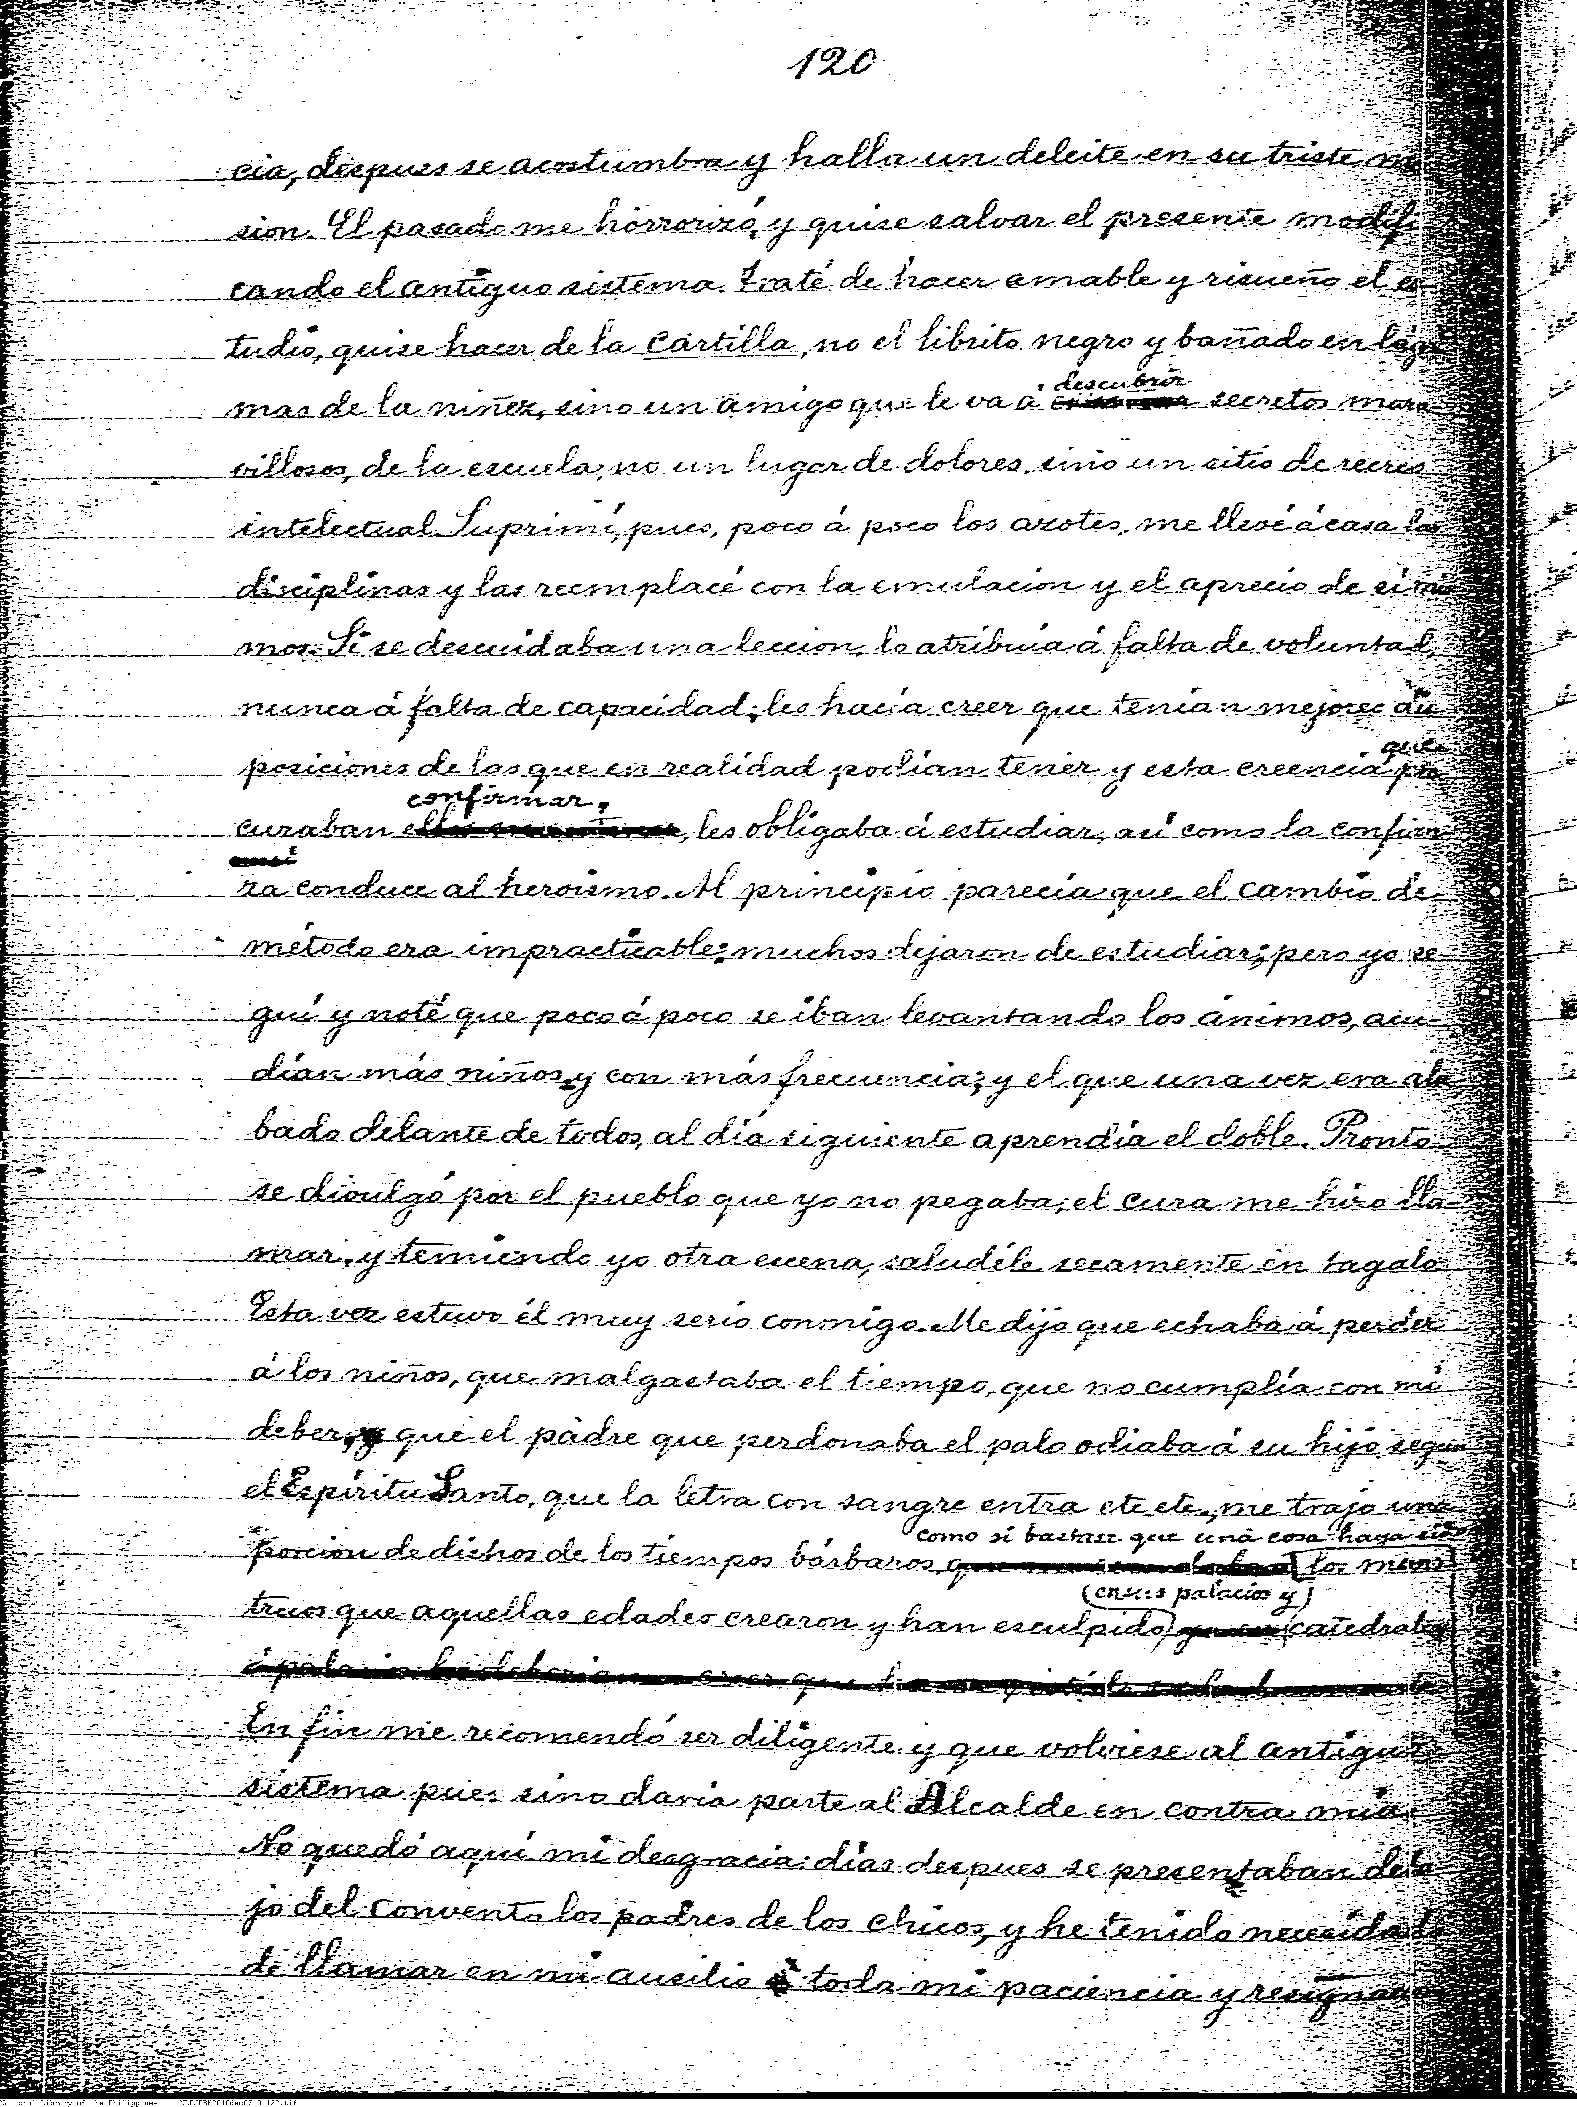 120
cia, despues se acostumbra y halla un deleite en su triste mi
sion. El pasado me horrorizó, y quise salvar el presente modifi
cando el antiguo sistema. Traté de hacer amable y risueño el es
tudio, quise hacer de la Cartilla, no el librito negro y bañado en lágri
descubrir
mas de la niñez, sino un amigo que le va á secretos mara
villosos, de la escuela, no un lugar de dolores, sino un sitio de recreo
intelectual. Suprimí, pues, poco á poco los azotes, me llevé á casa las
disciplinas y las reemplacé con la emulacion y el aprecio de sí mis
mos. Si se descuidaba una leccion, lo atribuia á falta de voluntad,
nunca á falta de capacidad; les hacía creer que tenían mejores dis
que
posiciones de las que en realidad podían tener y esta creencia pro
confirmar,
curaban les obligaba á estudiar, así como la confian
za conduce al heroismo. Al principio parecía que el cambio de
método era impracticable; muchos dejaron de estudiar; pero yo se
guí y noté que poco á poco se iban levantando los ánimos, acu-
dían más niños, y con más frecuencia; y el que una vez era ala
bado delante de todos, al día siguiente aprendía el doble. Pronto
se divulgó por el pueblo que yo no pegaba; el cura me hizo lla-
mar, y temiendo yo otra escena, saludéle secamente en tagalo
Esta vez estuvo él muy serio conmigo. Me dijo que echaba á perder
á los niños, que malgastaba el tiempo, que no cumplía con mi
deber, que el padre que perdonaba el palo odiaba á su hijo segun
el Espíritu Santo, que la letra con sangre entra etc etc., me trajo una
como si bastase que una cosa haya sido
porcion de dichos de los tiempos bárbaros, los mons
(en sus palacios y)
truos que aquellas edades crearon y han esculpido catedrales
En fin me recomendó ser diligente y que volviese al antiguo
sistema pues sino daria parte al Alcalde en contra mía.
No quedó aquí mi desgracia: días despues se presentaban deba
jo del convento los padres de los chicos, y he tenido necesidad
de llamar en mi auxilio á toda mi paciencia y resignacion